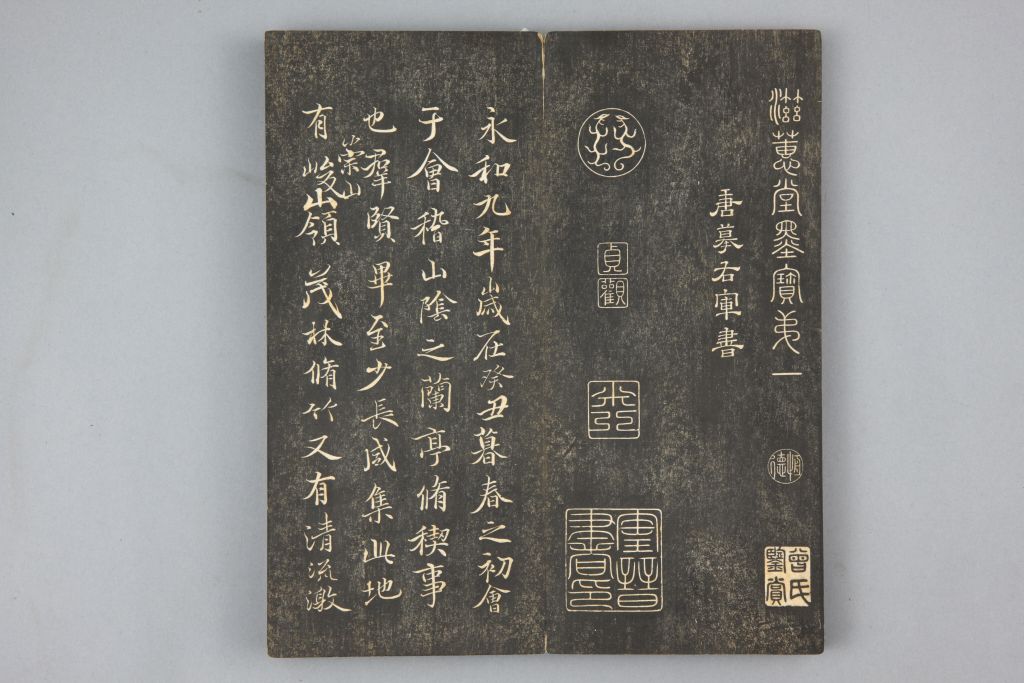 滋蕙堂墨寶弟一
恒德
曾氏鑒賞
唐摹右軍書
貞觀
永和九年歲在癸丑暮春之初會
于會稽山陰之蘭亭脩稧事
也羣賢畢至少長咸集此地
崇山
有峻山領茂林脩竹又有清流激